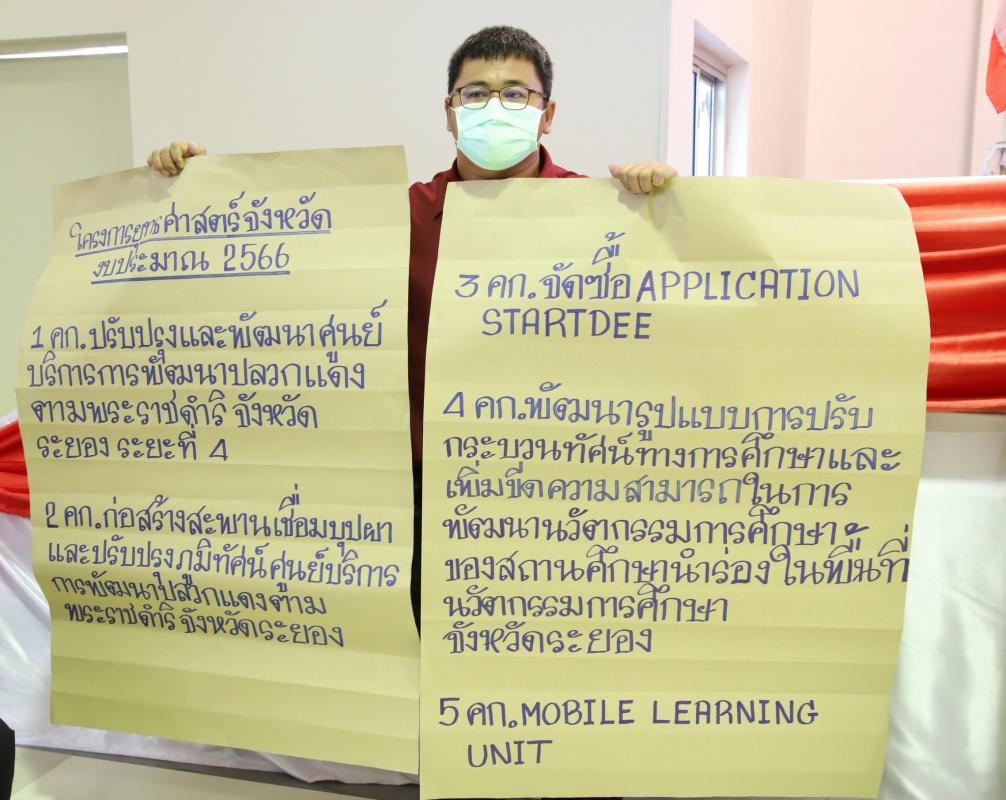 โครงการยุทธศาสตร์จังหวัด
งบประมาณ 2566
1 คก.ปรับปรุงและพัฒนาศูนย์
บริการการพัฒนาปลวกแดง
ตามพระราชดำริ จังหวัด
ระยอง ระยะที่ 4
2 คก.ก่อสร้างสะพานเชื่อมบุปผา
และปรับปรุงภูมิทัศน์ศูนย์บริการ
การพัฒนาปลวกแดงตาม
พระราชดำริ จังหวัดระยอง
3 คก.จัดซื้อ APPLICATION
STARTDEE
4 คก.พัฒนารูปแบบการปรับ
กระบวนทัศน์ทางการศึกษาและ
เพิ่มขีดความสามารถในการ
พัฒนานวัตกรรมการศึกษา
ของสถานศึกษานำร่องในพื้นที่
นวัตกรรมการศึกษา
จังหวัดระยอง
5 คก.MOBILE LEARNING
UNIT